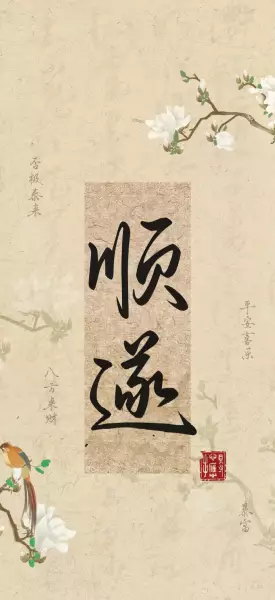 否极泰来
顺遂
平安喜乐
八方来财
暴富